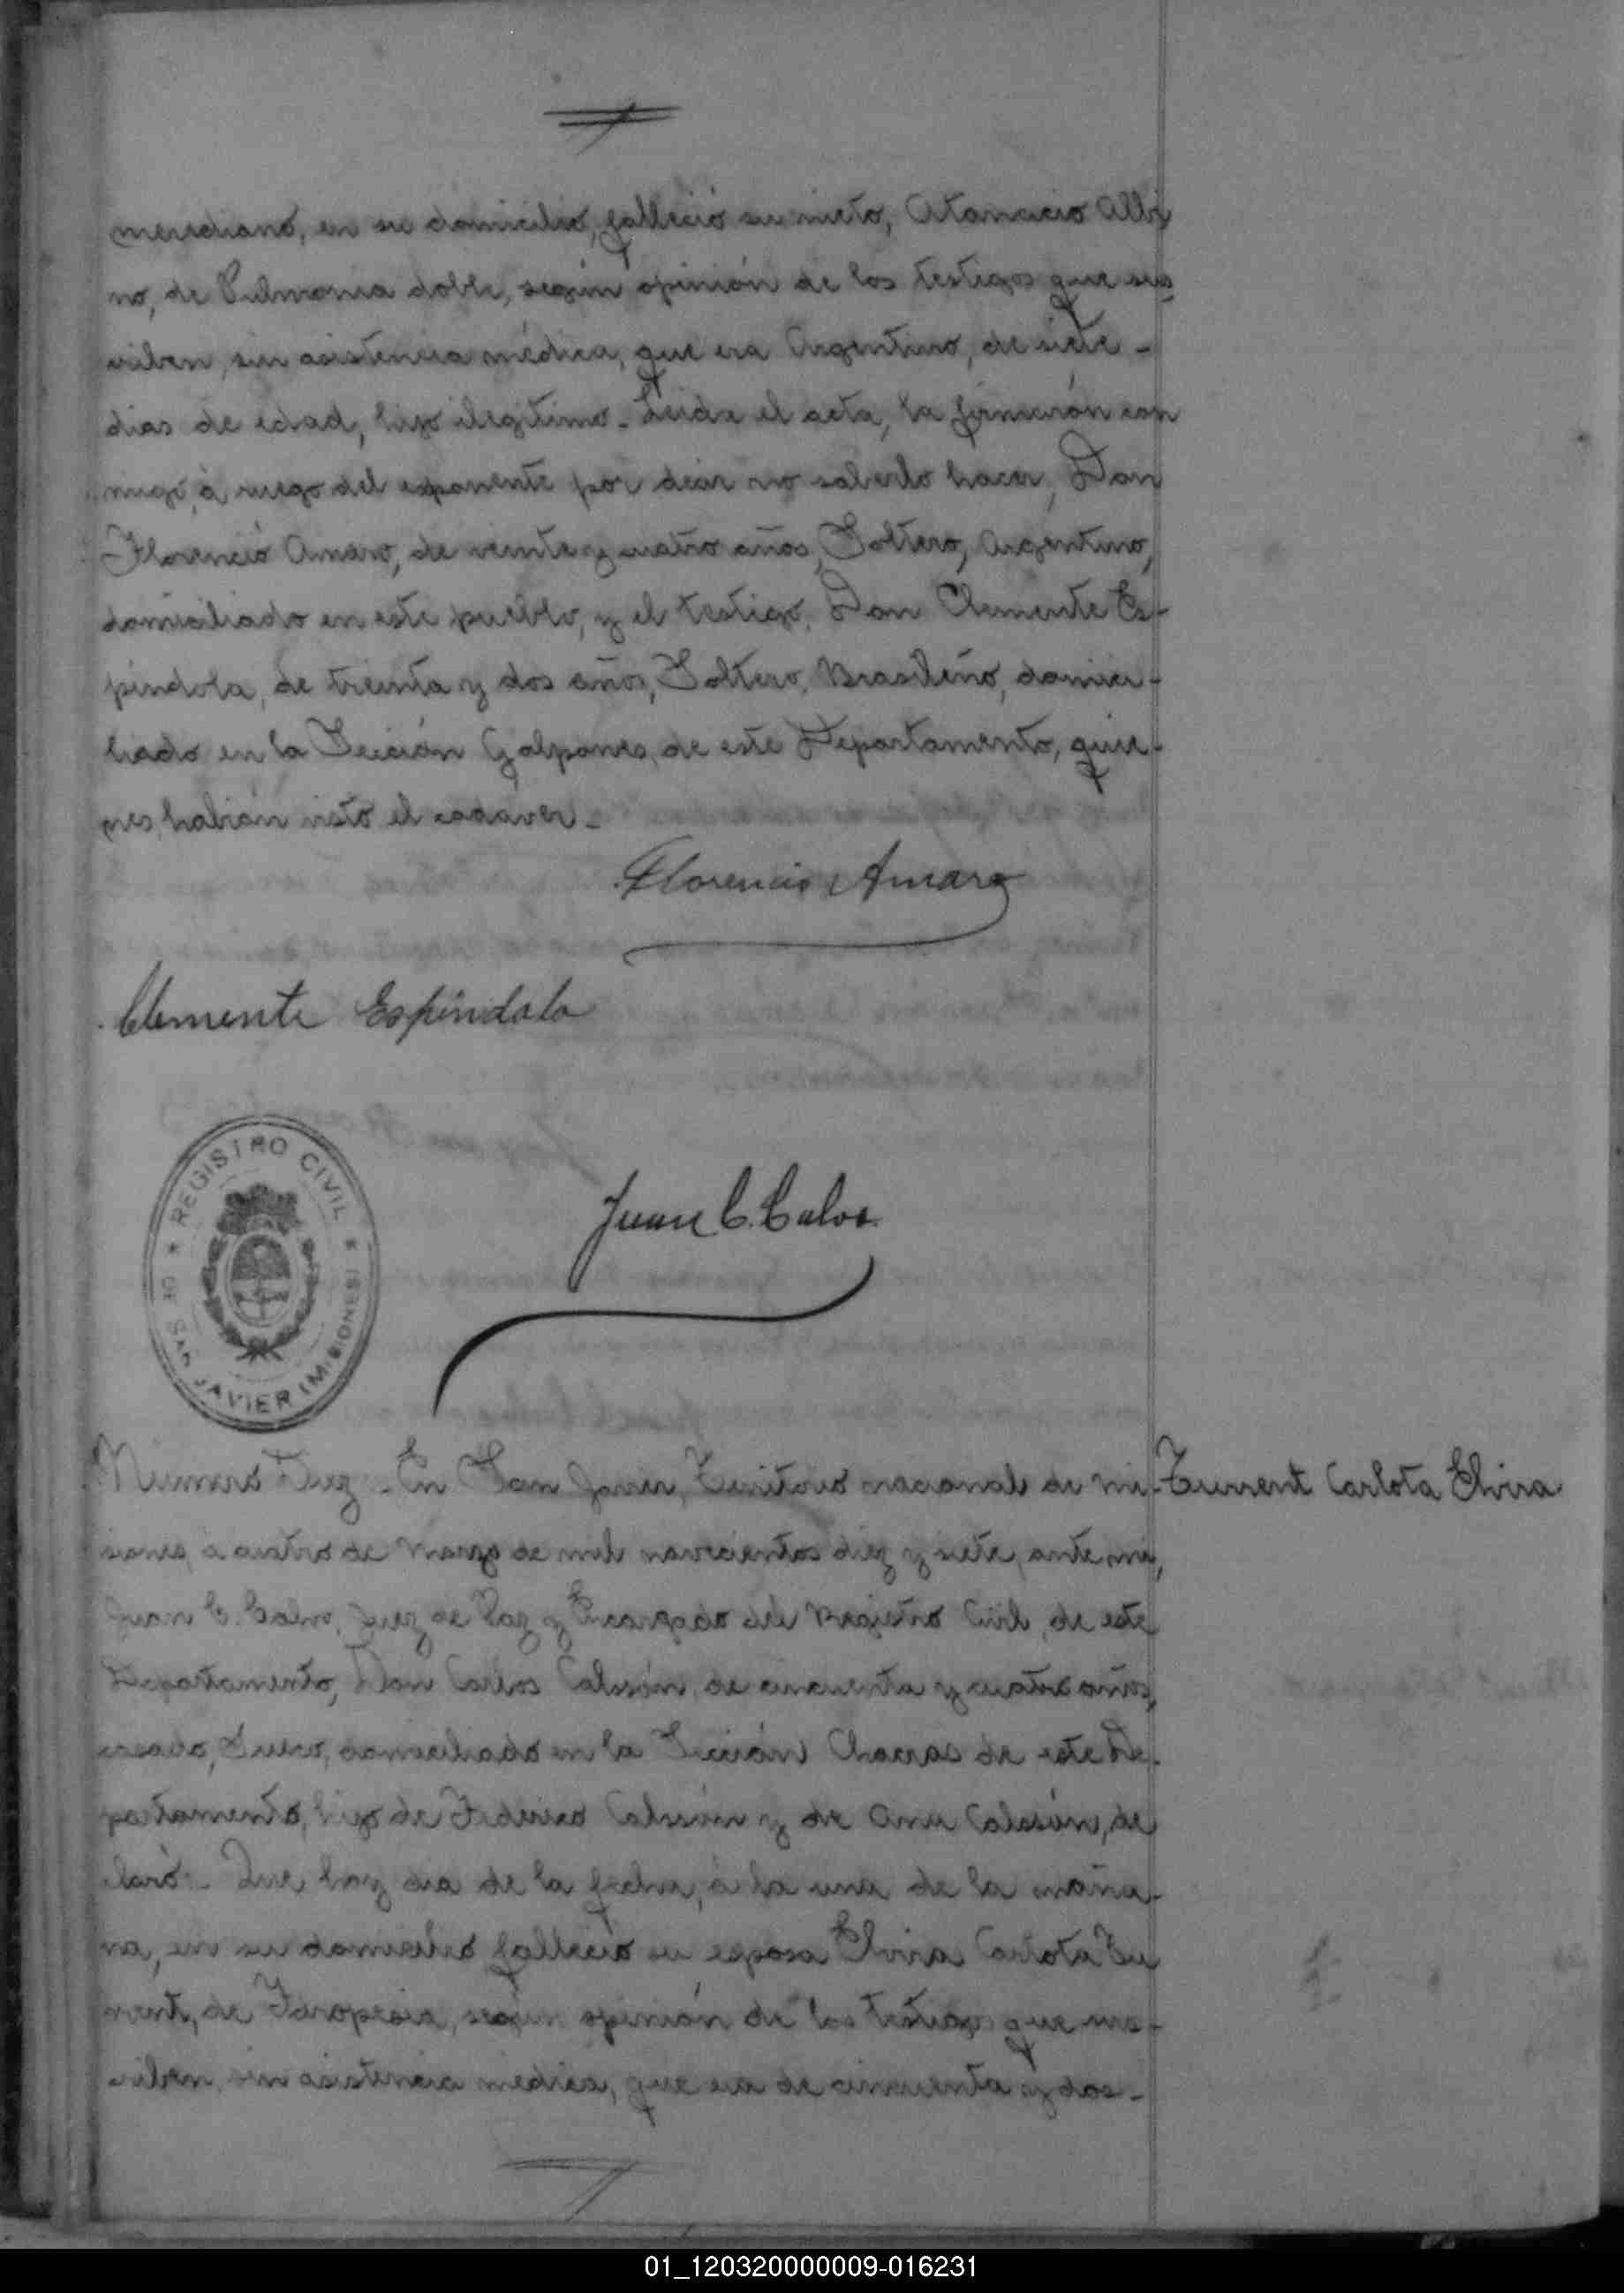 meridiano, en su domicilio, falleció su nieto, Atanacio Albi
no, de Pulmonia doble, según opinión de los testigos que sus
criben, sin asistencia médica, que era Argentino, de siete -
dias de edad, hijo ilegitimo. Leida el acta, la firmarón con
migo, á ruego del exponente por decir no saberlo hacer, Don
Florencio Amaro, de veinte y cuatro años, Soltero, Argentino,
domiciliado en este pueblo, y el testigo, Don Clemente Es-
pindola, de treinta y dos años, Soltero, Brasileño, domici-
liado en la Sección Galpones, de este Departamento, quie-
nes habián visto el cadaver.
Florencio Amaro
Clemente Espindola
REGISTRO CIVIL
DE SAN JAVIER (MISIONES)
Juan C. Calvo.
Numero Diez. En San Javier, Territorio nacional de Mi-
siones, á cuatro de Marzo de mil novecientos diez y siete, ante mi,
Juan C. Calvo, Juez de Paz y Encargado del Registro Civil, de este
Departamento, Don Carlos de cincuenta y cuatro años,
casado, Sueco, domiciliado en la Sección Chacras de este De-
partamento, hijo de Federico y de Ana de
claró. Que hoy dia de la fecha, á la una de la maña-
na, en su domicilio falleció su esposa Elvira Carlota Tu
rrent, de según opinión de los testigos que sus-
criben, sin asistencia medica, que era de cincuenta y dos -
Turrent Carlota Elvira
01_120320000009-016231